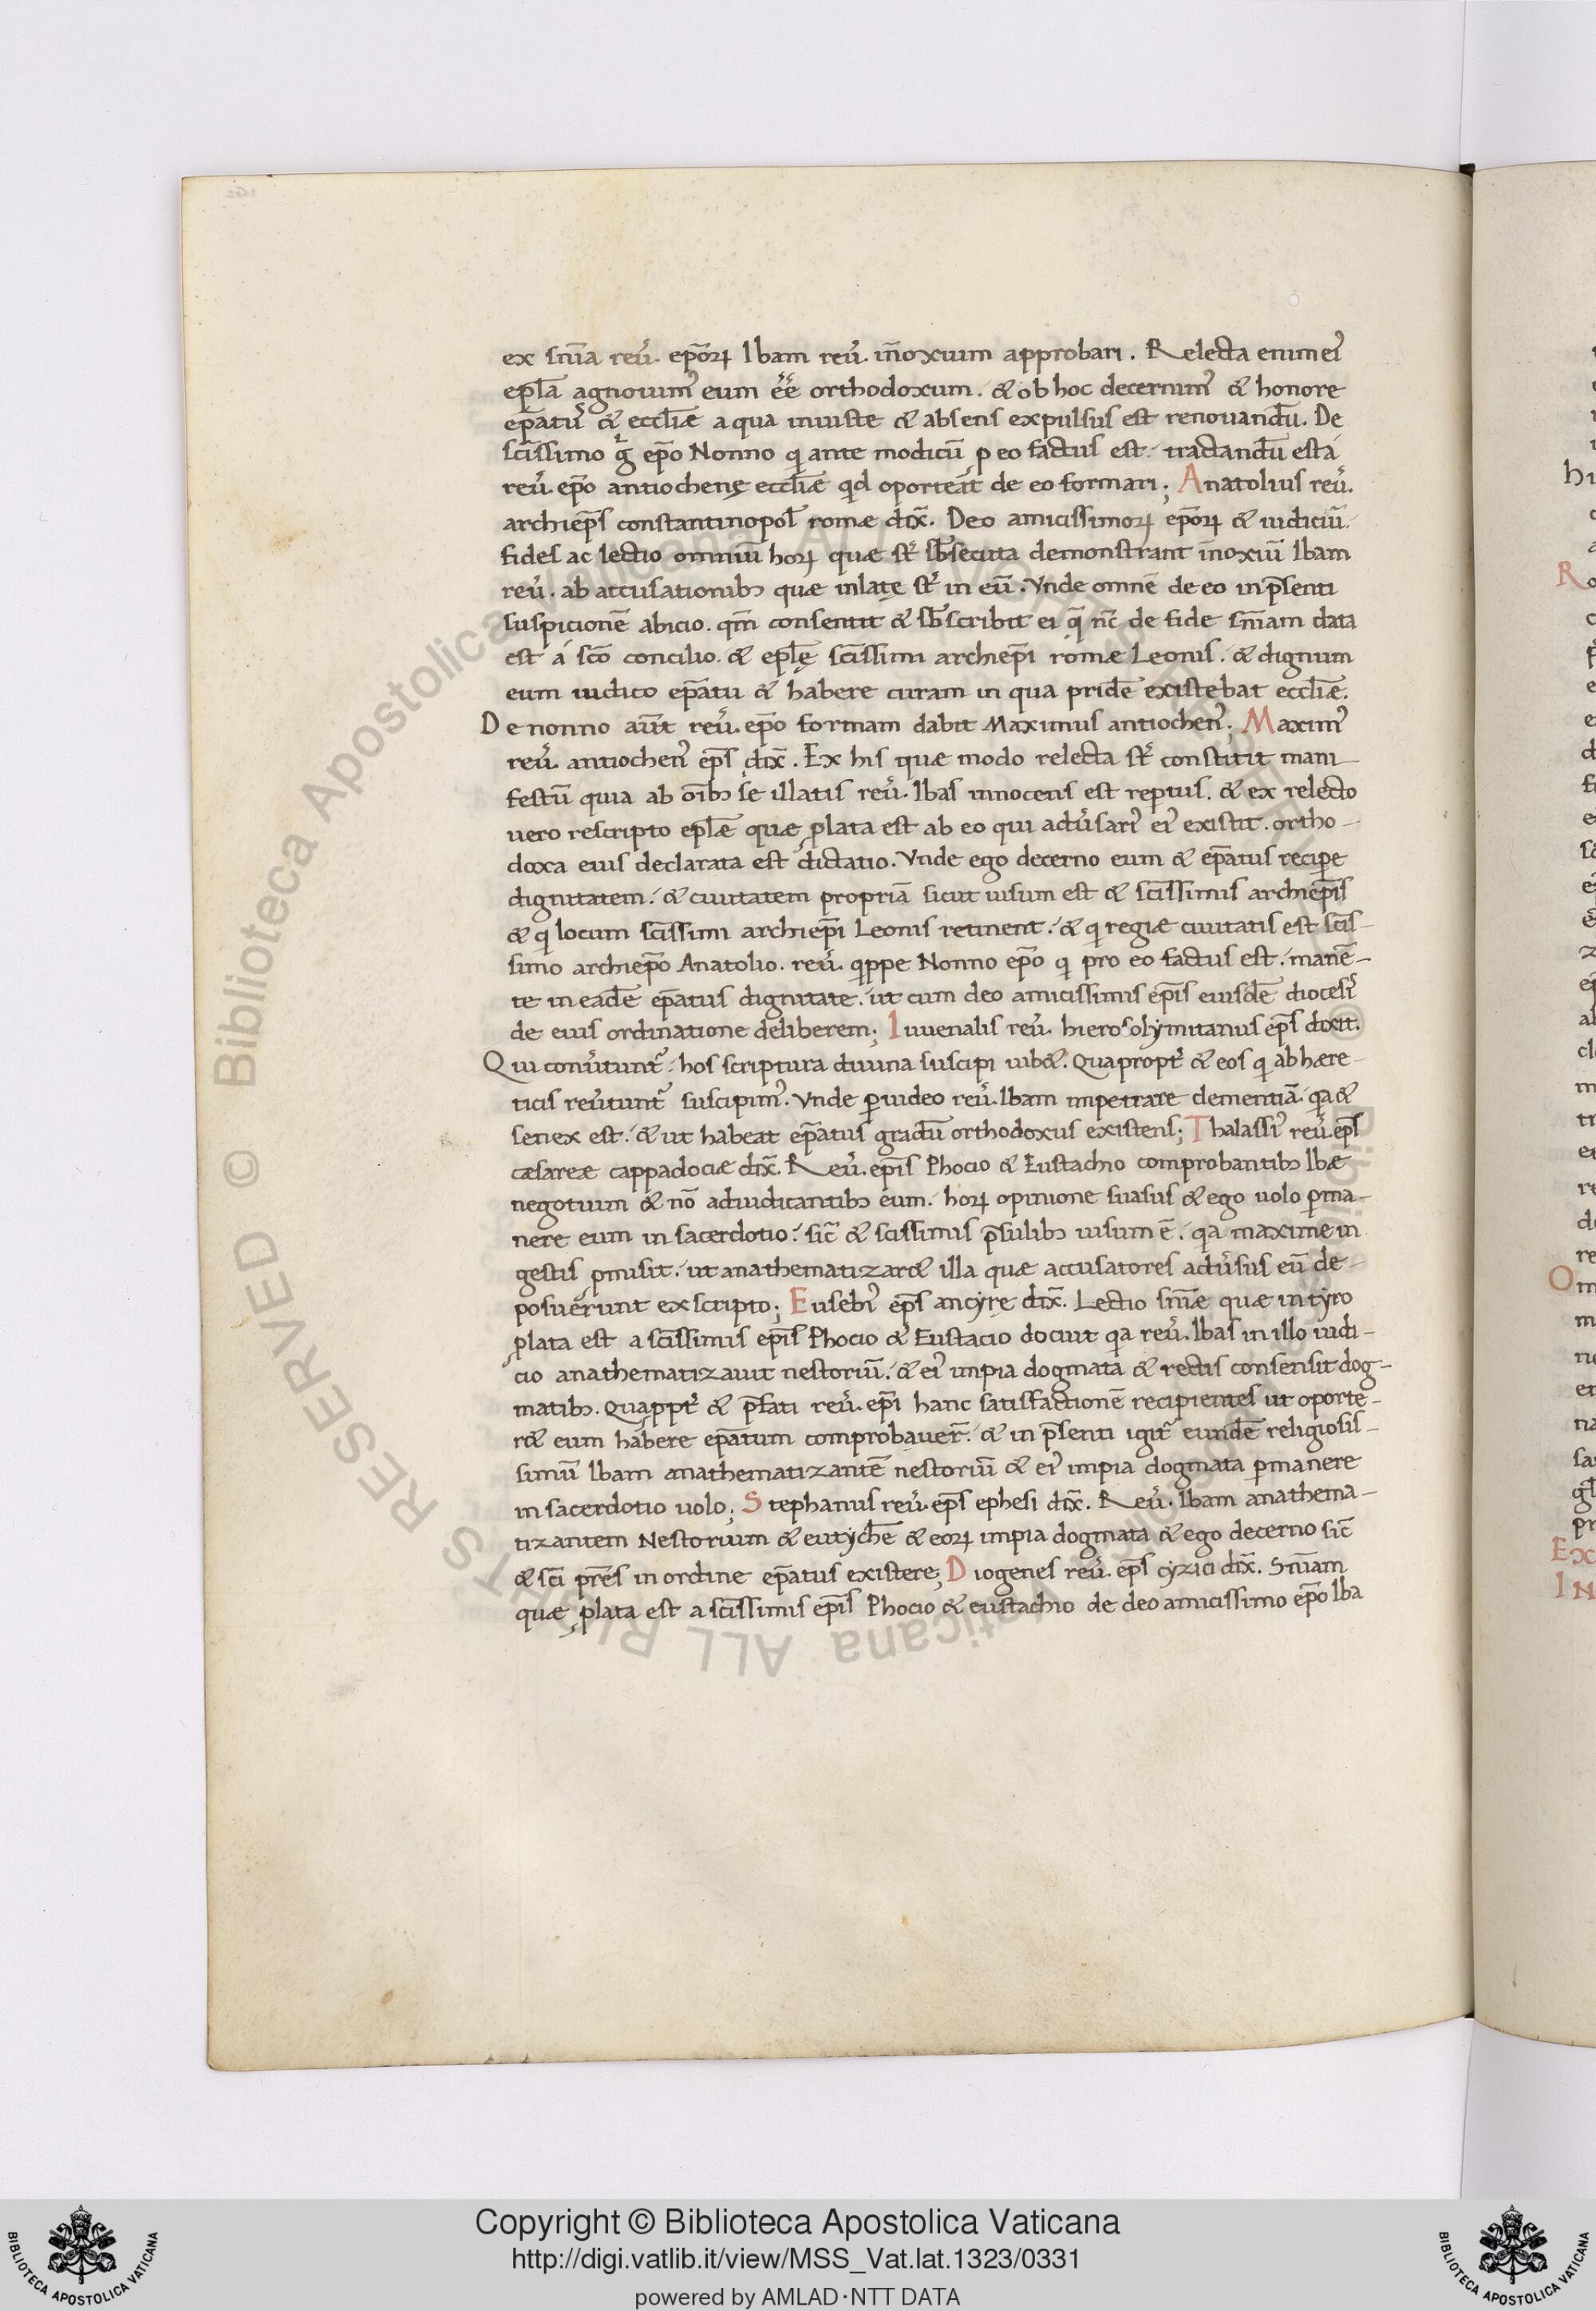 ex sn̄ia reu᷒. ep̄oꝝ Ibam reu᷒. in̄oxium approbari. Relecta enim eiꝰ
epl̄a agnouimꝰ eum ee᷒ orthodoxum. & ob hoc decernimꝰ & honore
ep̄atu᷒ & eccl̄iæ a qua iniuste & absens expulsus est renouandū. De
sc̄issimo g̊ ep̄o Nonno q ante modicū p eo factus est. tractandū est a
reu᷒. ep̄o antiochenę eccl̄iæ qd oporteat de eo formari; Anatolius reu᷒.
archiep̄s constantinopol̄ romæ dix̄. Deo amicissimoꝝ ep̄oꝝ & iudiciū.
fides ac lectio omniū hoꝝ quæ st᷒ sb̄secuta demonstrant in̄oxiū Ibam
reu᷒. ab accusationibꝫ quæ inlatę st᷒ in eū. Vnde omnē de eo in p̄senti
suspicionē abicio. qm̄ consentit & sb̄scribit ei q̄ nc̄ de fide sn̄iam data
est a sc̄o concilio. & epl̄ę sc̄issimi archiep̄i romæ Leonis. & dignum
eum iudico ep̄atu & habere curam in qua pridē existebat eccl̄iæ.
De nonno aut̄ reu᷒. ep̄o formam dabit Maximus antiochenꝰ; Maximꝰ
reu᷒. antiochenꝰ ep̄s dix̄. Ex his quæ modo relecta st᷒ constitit mani-
festū quia ab oīibꝫ se illatis reu᷒. Ibas innocens est reptus. & ex relecto
uero rescripto epl̄æ quæ ꝓlata est ab eo qui adu᷒sariꝰ eiꝰ existit. ortho-
doxa eius declarata est dictatio. Vnde ego decerno eum & ep̄atus reciꝑe
dignitatem. & ciuitatem propriā sicut uisum est & sc̄issimis archiep̄is
& q locum sc̄issimi archiep̄i Leonis retinent. & q regiæ ciuitatis est sc̄is-
simo archiep̄o Anatolio. reu᷒. qippe Nonno ep̄o q pro eo factus est. manē-
te in eadē ep̄atus dignitate. ut cum deo amicissimis ep̄is eiusdē diocesiꝰ
de eius ordinatione deliberem; Iuuenalis reu᷒. hierosolymitanus ep̄s dixit.
Qui conu᷒tunt᷒. hos scriptura diuina suscipi iub&. Quapropt᷒ & eos q ab hære-
ticis reu᷒tunt᷒ suscipimꝰ. Vnde ꝑuideo reu᷒. Ibam impetrare clementiā. qa &
senex est. & ut habeat ep̄atus gradū orthodoxus existens; Thalassiꝰ reu᷒. ep̄s
cæsareæ cappadociæ dix̄. Reu᷒. ep̄is Phocio & Eustachio comprobantibꝫ Ibæ
negotium & nō adiudicantibꝫ eum. hoꝝ opinione suasus & ego uolo ꝑma-
nere eum in sacerdotio. sic̄ & scissimis p̄sulibꝫ uisum ē. qa maxime in
gestis ꝓmisit. ut anathematizar& illa quæ accusatores adu᷒sus eū de-
posuerunt ex scripto; Eusebiꝰ ep̄s ancyrę dix̄. Lectio sn̄iæ quæ in tyro
ꝓlata est a sc̄issimis ep̄is Phocio & Eustacio dociut qa reu᷒. Ibas in illo iudi-
cio anathematizauit nestoriū. & eiꝰ impia dogmata & rectis consensit dog-
matibꝫ. Quaꝓpt᷒ & p̄fati reu᷒. ep̄i hanc satisfactionē recipientes ut oporte-
r& eum habere ep̄atum comprobauer̄. & in p̄senti igit᷒ eundē religiosis-
simū Ibam anathematizantē nestoriū & eiꝰ impia dogmata ꝑmanere
in sacerdotio uolo; Stephanus reu᷒. ep̄s ephesi dix̄. Reu᷒. Ibam anathema-
tizantem Nestorium & eutychē & eoꝝ impia dogmata & ego decerno sic̄
& sc̄i pr̄es in ordine ep̄atus existere; Diogenes reu᷒. ep̄s cyzici dix̄. Sn̄iam
quæ ꝓlata est a sc̄issimis ep̄is Phocio & eustachio de deo amicissimo ep̄o Iba
Copyright © Biblioteca Apostolica Vaticana
http://digi.vatlib.it/view/MSS_Vat.lat.1323/0331
powered by AMLAD·NTT DATA